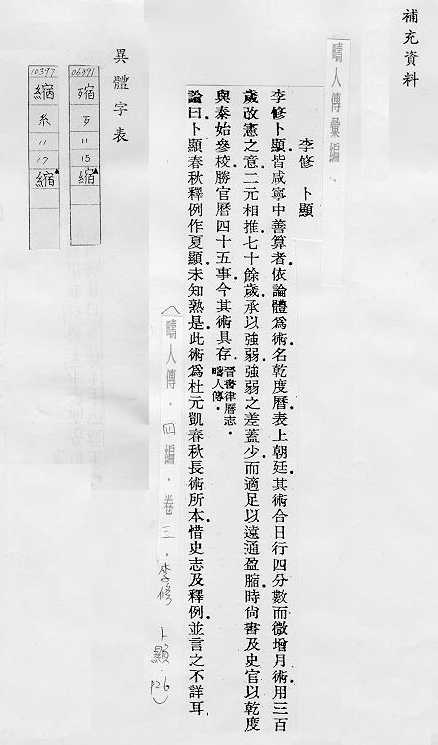 補充資料
疇人傳彙編.
李修 卜顯
李修卜顯皆咸寧中善算者依論體爲術名乾度曆表上朝廷其術合日行四分數而微增月術用三百
歲改憲之意二元相推七十餘歲承以強弱強弱之差蓋少而適足以遠通盈䐴時尙書及史官以乾度
與泰始參校勝官曆四十五事今其術具存晉書律曆志.疇人傳.
論曰卜顯春秋釋例作夏顯未知熟是此術爲杜元凱春秋長術所本惜史志及釋例並言之不詳耳
(疇人傳.四編.卷三.李修 卜顯.P26)
異體字表
06891
歹
11
15
縮
10397
縮
糸
11
17
縮